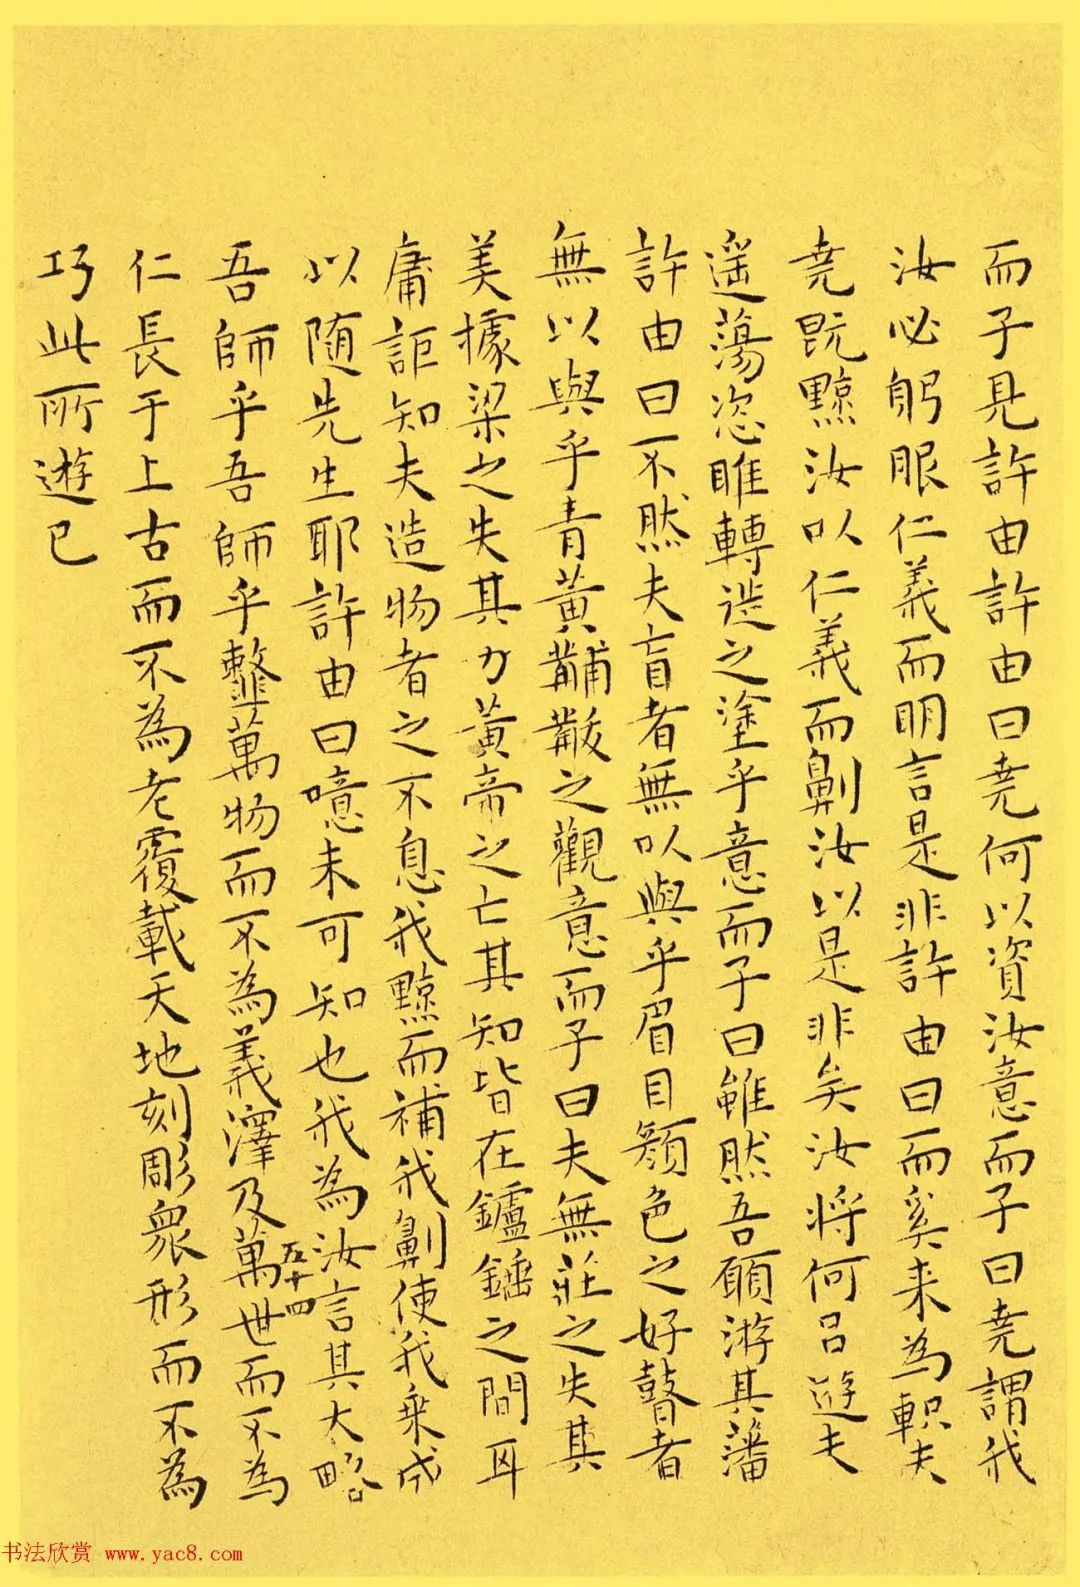 而子見許由許由曰堯何以資汝意而子曰堯謂我
汝必躬服仁義而明言是非許由曰而奚来為軹夫
堯既黥汝以仁義而劓汝以是非矣汝将何㠯遊夫
遥蕩恣睢轉徙之塗乎意而子曰雖然吾願游其藩
許由曰不然夫盲者無以與乎眉目顔色之好瞽者
無以與乎青黃黼黻之觀意而子曰夫無莊之失其
美據梁之失其力黃帝之亡其知皆在鑪錘之間耳
庸詎知夫造物者之不息我黥而補我劓使我乗成
以随先生耶許由曰噫未可知也我為汝言其大略
吾師乎吾師乎䪡萬物而不為義澤及萬世而不為
五十四
仁長于上古而不為老覆載天地刻彫衆形而不為
巧此所遊已
书法欣赏 www.yac8.com